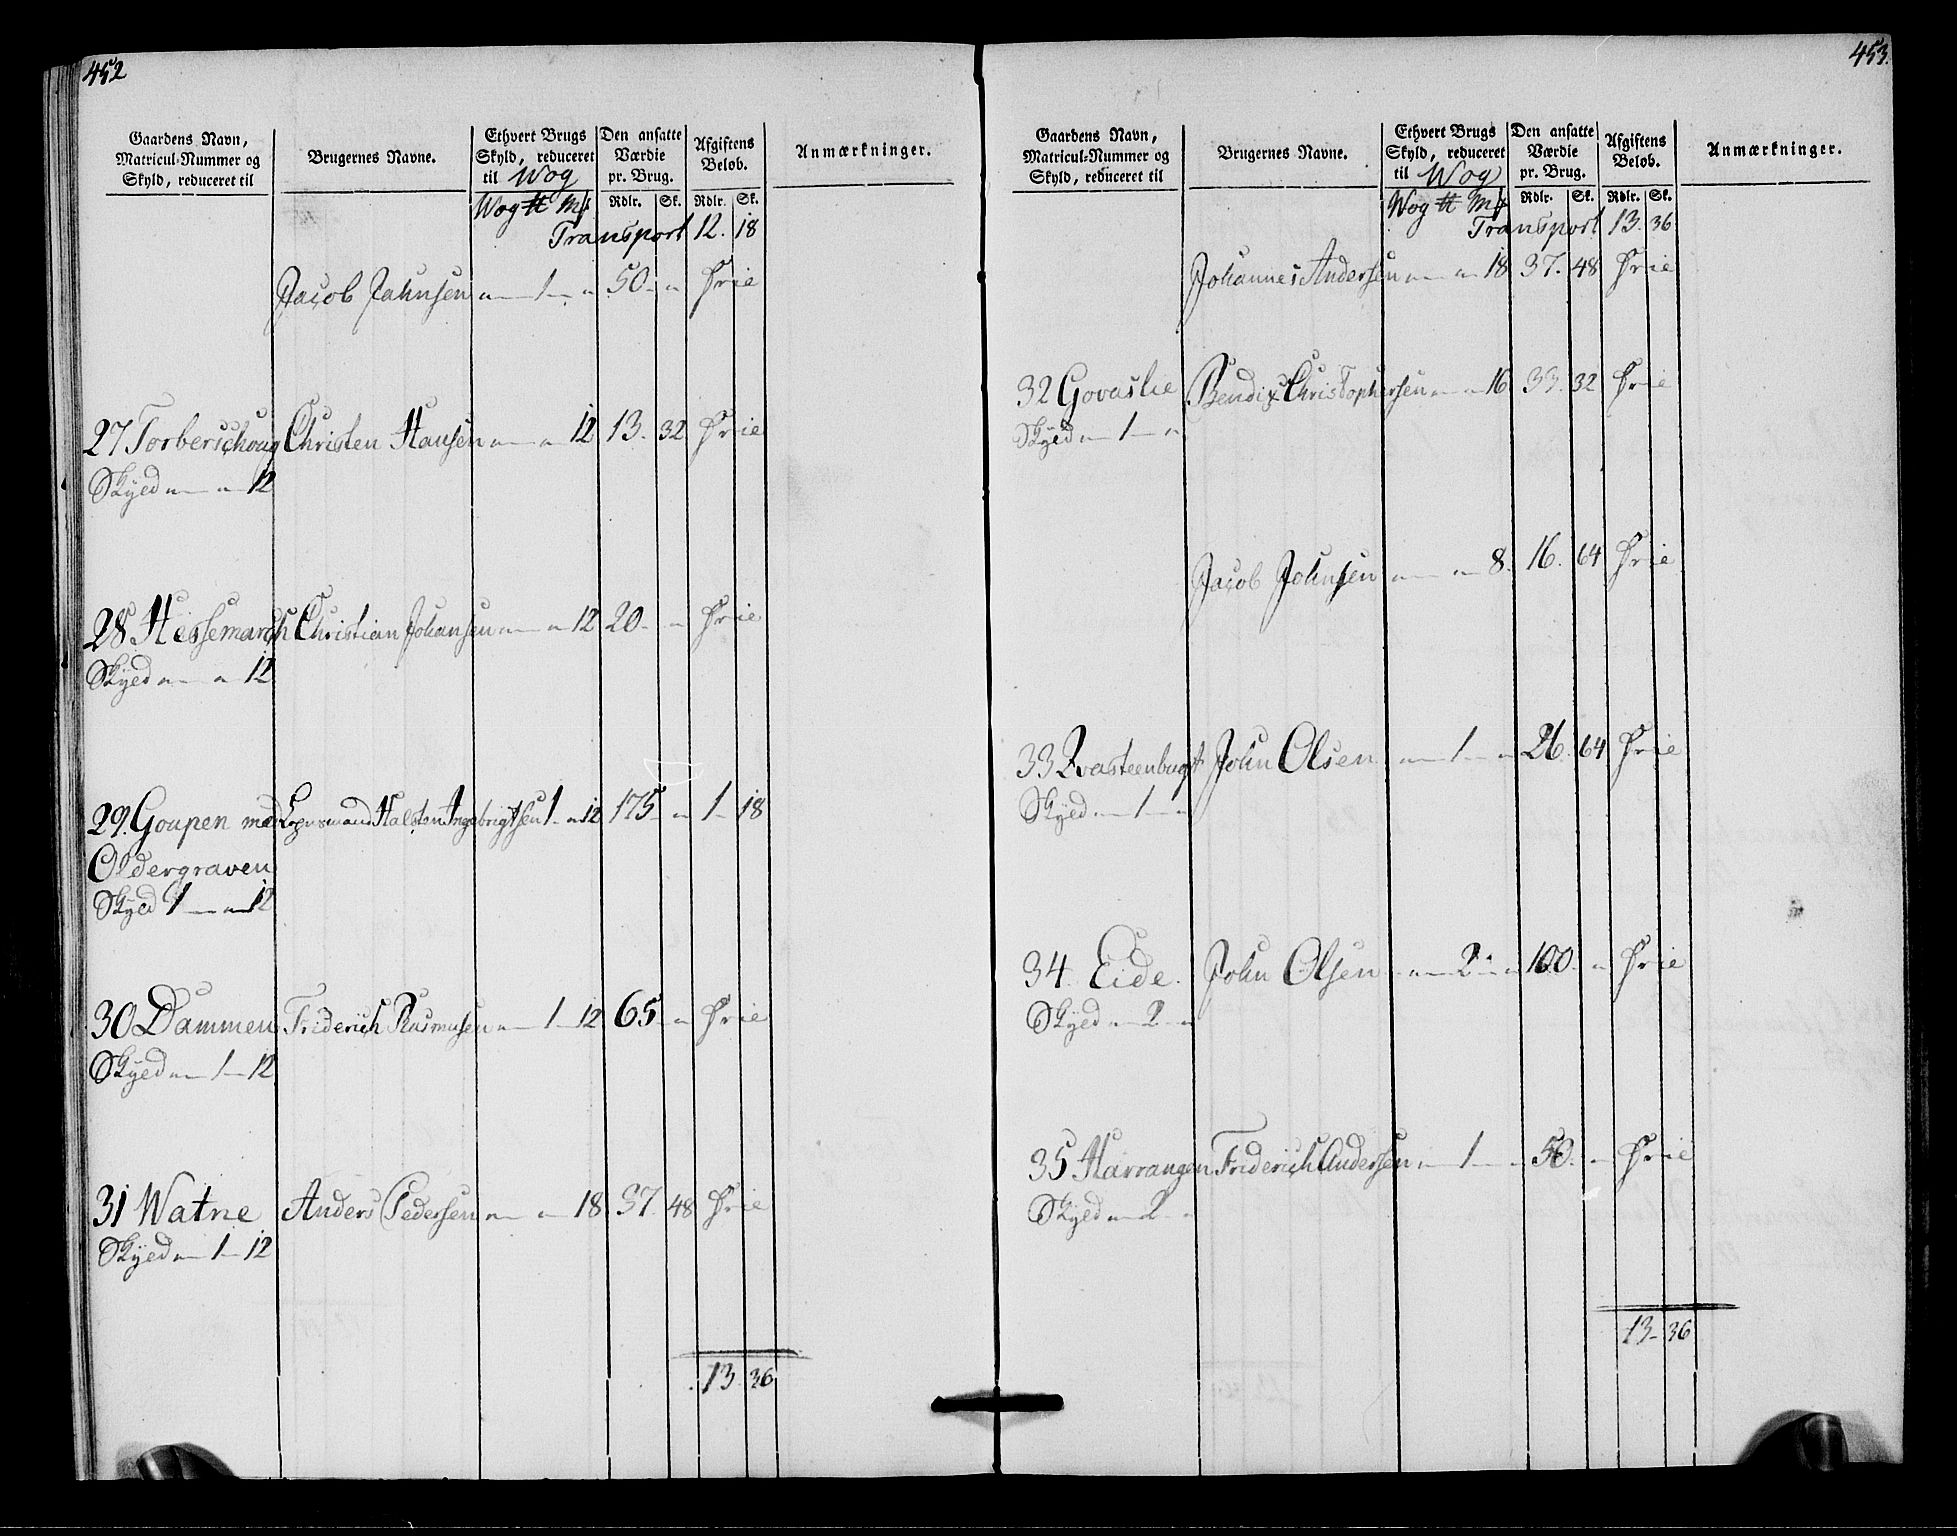 452
Gaardens Navn, Matricul-Nummer og Skyld, reduceret til
Brugernes Navne.
Ethvert Brugs Skyld, reduceret til Wog
Den ansatte Værdie pr. Brug.
Afgiftens Beløb.
Anmærkninger.
Wog ℔ Mk Rdlr. Sk. Rdlr. Sk.
Transport 12. 18
Jacob Jahnsen " 1 " 50 " Frie
27 Torberschoug Christen Hansen " " 12 13. 32 Frie
Skyed " " 12
28 Hessemarch Christian Johansen " " 12 20 " Frie
Skyed " " 12
29. Goupen med Lensmand Halsten Ingebrigtsen 1 " 12 175 " 1 18
Oldergraven
Skyed 1 " 12
30 Dammen Friderich Rasmusen " 1 12 65 " Frie
Skyed " 1 12
31 Watne Anders Pedersen " " 18 37 48 Frie
Skyed " 1 12
13. 36
453.
Gaardens Navn, Matricul-Nummer og Skyld, reduceret til
Brugernes Navne.
Ethvert Brugs Skyld, reduceret til Wog
Den ansatte Værdie pr. Brug.
Afgiftens Beløb.
Anmærkninger.
Wog ℔ Mk Rdlr. Sk. Rdlr. Sk.
Transport 13. 36
Johannes Andersen " " 18 37. 48 Frie
32 Govaslie Bendix Christophersen " " 16 33. 32 Frie
Skyed " 1 "
Jacob Johnsen " " 8. 16. 64 Frie
33 John Olsen " 1 " 26. 64 Frie
Skyed " 1 "
34. Eide. John Olsen " 2 " 100. " Frie
Skyed " 2 "
35 Harrangen Friderich Andersen " 1 " 50. " Frie
Skyed " 2 "
13 36